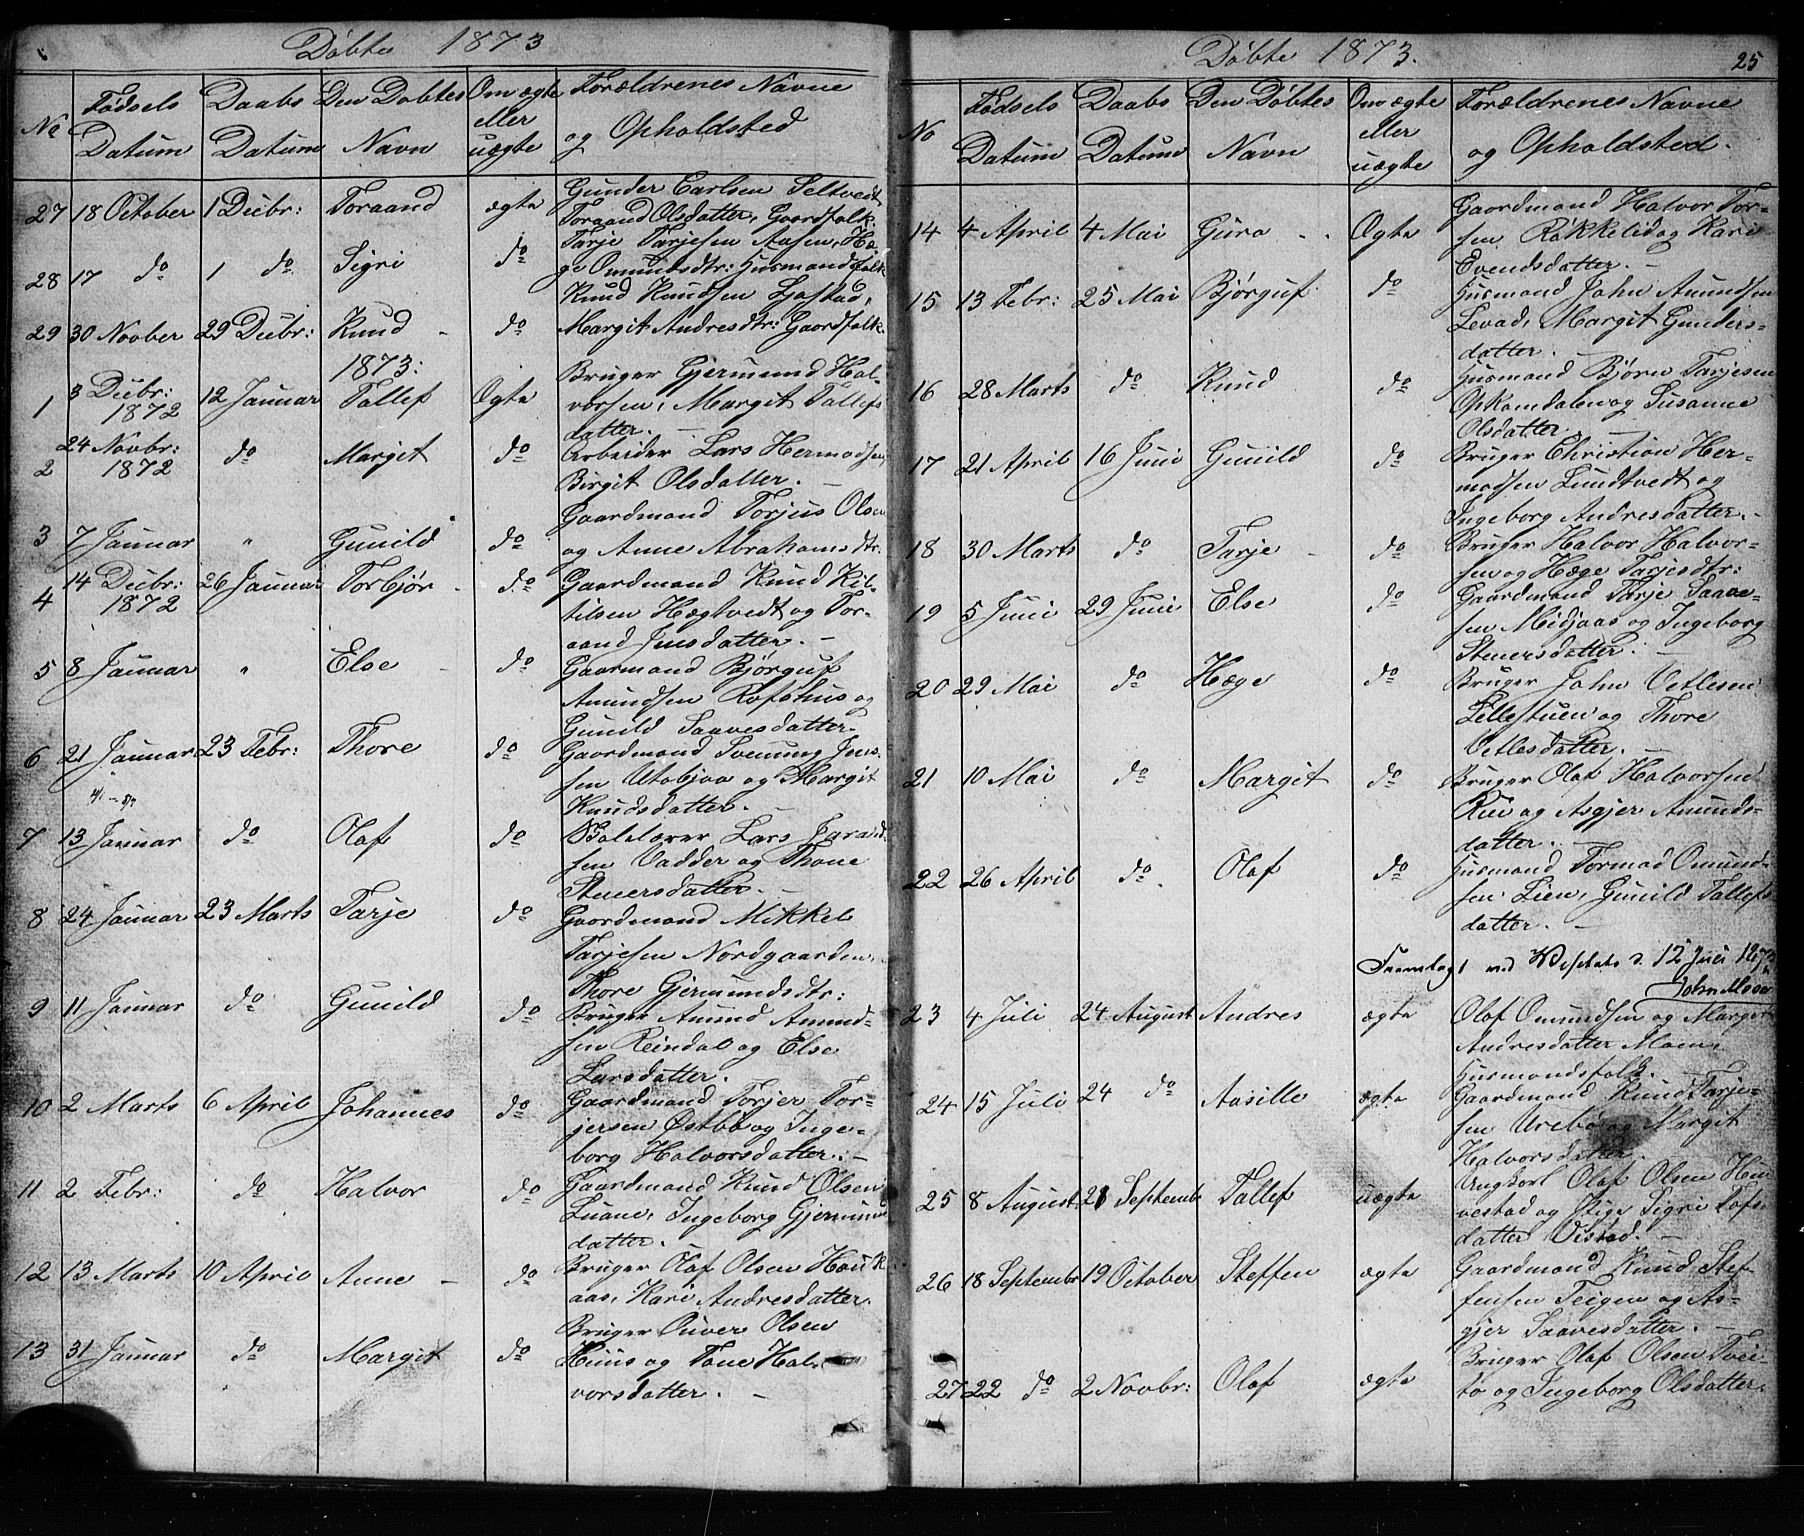 Döbte 1873
No Fødsels Datum Daabs Datum Den Döbtes Navn Om ægte eller uægte Forældrenes Navne og Opholdsted
27 18 October 1 Decbr: Toraand ægte Gunder Carlsen Seltvedt
Toraand Olsdatter, Gaardfolk.
28 17 do 1 do Sigri do Tarje Tarjesen Aasen, Hæ-
ge Omundsdtr: Husmandsfolk
29 30 Novber 29 Decbr: Knud do Knud Knudsen
Margit Andresdtr: Gaardfolk
1873:
1 3 Decbr: 1872 12 Januar Tallef Ogte Bruger Gjermund Hal-
vorsen, Margit Tallefs
datter. —
2 24 Novbr: 1872 do Margit do Arbeider Lars Hermodsen,
Birgit Olsdatter. —
3 7 Januar " Gunild do Gaardmand Torjus Olsen
og Anne Abrahamsdtr.
4 14 Decbr: 1872 26 Januar Torbjør do Gaardmand Knud Kit-
tilsen Hægtvedt og Tor-
aand Jensdatter. —
5 8 Januar " Else do Gaarmand Bjørguf
Amundsen Rofshus og
Gunild Saavesdatter
6 21 Januar 23 Febr: Thore do Gaardmand Svenung Jens-
sen Utabjaa og Margit
Knudsdatter. —
7 13 Januar do Olaf do Skolelærer Lars Jarand-
sen Vadder og Thone
Steversdatter. —
8 24 Januar 23 Marts Tarje do Gaardmand Mikkel
Tarjesen Nordgaarden,
Thore Gjermundsdtr:
9 11 Januar do Gunild do Bruger Amund Amund-
sen Reindal og Else
Larsdatter.
10 2 Marts 6 April Johannes do Gaardmand Torjer Tor-
jersen Østbø og Inge-
borg Halvorsdatter. —
11 2 Febr: do Halvor do Gaardmand Knud Olsen
Luane, Ingeborg Gjermunds
datter.
12 13 Marts 10 April Anne — do Bruger Olaf Olsen Hauk-
aas, Kari Andresdatter.
13 31 Januar do Margit do Bruger Ouver Olsen
Huus og Tone Hal-
vorsdatter. —
Döbte 1873. 25
No Fødsels Datum Daabs Datum Den Döbtes Navn Om ægte eller uægte Forældrenes Navne og Opholdsted.
14 4 April 4 Mai Guro Ogte Gaardmand Halvor Tor-
sen Røkkelid og Kari
Evendsdatter. —
15 13 Febr: 25 Mai Bjørguf do Husmand John Amundsen
Levad, Margit Gunders-
datter. —
16 28 Marts do Knud do Husmand Björn Tarjesen
Opkomdalen og Susanne
Olsdatter. —
17 21 April 16 Juni Gunild do Bruger Christian Her-
modsen Lundtvedt og
Ingeborg Andresdatter. —
18 30 Marts do Tarje do Bruger Halvor Halvor-
sen og Hæge Tarjesdtr:
19 5 Juni 29 Juni Else do Gaardmand Tarje Saave-
sen Midjaas og Ingeborg
Steversdatter. —
20 29 Mai do Hæge do Bruger John Vetlesen
Lillestuen og Thore
Vetlesdatter. —
21 10 Mai do Margit do Bruger Olaf Halvorsen
Rui og Asgjer Amunds-
datter. —
22 26 April do Olaf do Husmand Tormod Omund-
sen Lien, Gunild Tallefs
datter. —
Fremlagt ved Visitats d. 12 Juli 1873
23 4 Juli 24 August Andres ægte Olaf Omundsen og Margit
Andresdatter Moen,
Husmandsfolk. —
24 15 Juli 24 do Aasille ægte Gaardmand Knud Tarje-
sen Urebø og Margit
Halvorsdatter.
25 8 August 21 Septembr Tallef uægte Ungkarl Olaf Olsen
og Pige Sigri
datter Vistad. —
26 18 Septembr 19 October Steffen ægte Gaardmand Knud Stef-
fensen Teigen og As-
gjer Saavesdatter. —
27 22 do 2 Novbr: Olaf ægte Bruger Olaf Olsen Tvei-
tø og Ingeborg Olsdatter.